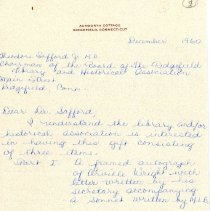 (2)
ACKWORTH COTTAGE
RIDGEFIELD, CONNECTICUT
December 1960
Theodore Safford Jr. M.D.
Chairman of the Board of the Ridgefield
Library and Historical Association
Main Street
Ridgefield Conn.
Dear Dr. Safford,
I understand the library and/or
historical association is interested
in having this gift consisting
of three items.
Part I A framed autograph
of Orville Wright with
letter written by his
secretary accompanying
a sonnet written by